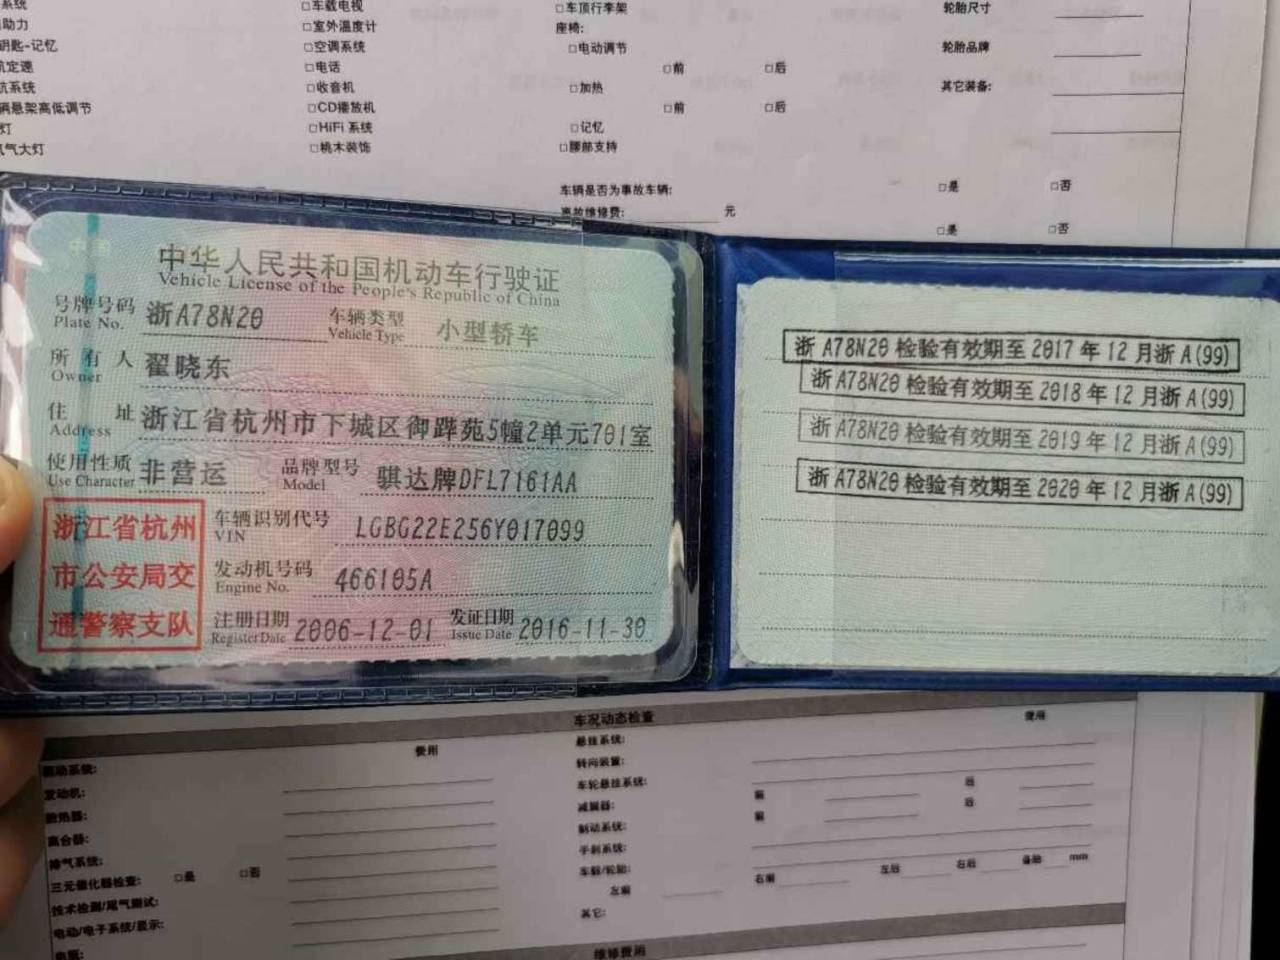 系统
□车载电视
□车顶行李架
轮胎尺寸
助力
□室外温度计
座椅:
钥匙-记忆
□空调系统
□电动调节
轮胎品牌
航定速
□电话
□前
□后
航系统
□收音机
□加热
其它装备:
辆悬架高低调节
□CD播放机
□前
□后
灯
□HiFi 系统
□记忆
氙气大灯
□桃木装饰
□腰部支持
车辆是否为事故车辆:
□是
□否
事故维修费:
元
□是
□否
中国
中华人民共和国机动车行驶证
Vehicle License of the People's Republic of China
号牌号码
Plate No.
浙A78N20
车辆类型
Vehicle Type
小型轿车
所有人
Owner
翟晓东
住址
Address
浙江省杭州市下城区御跸苑5幢2单元701室
使用性质
Use Character
非营运
品牌型号
Model
骐达牌DFL7161AA
浙江省杭州
市公安局交
通警察支队
车辆识别代号
VIN
LGBG22E256Y017099
发动机号码
Engine No.
466105A
注册日期
Register Date
2006-12-01
发证日期
Issue Date
2016-11-30
浙 A78N20 检验有效期至 2017 年 12 月浙 A(99)
浙 A78N20 检验有效期至 2018 年 12 月浙 A(99)
浙 A78N20 检验有效期至 2019 年 12 月浙 A(99)
浙 A78N20 检验有效期至 2020 年 12 月浙 A(99)
车况动态检查
费用
费用
悬挂系统:
转向装置:
发动机:
车轮悬挂系统:
前
后
散热器:
减震器:
前
后
离合器:
制动系统:
排气系统:
手刹系统:
三元催化器检查:
□是
□否
车毂/轮胎:
左前
右前
左后
右后
备胎
mm
技术检测/尾气测试:
其它:
电动/电子系统/显示:
维修费用